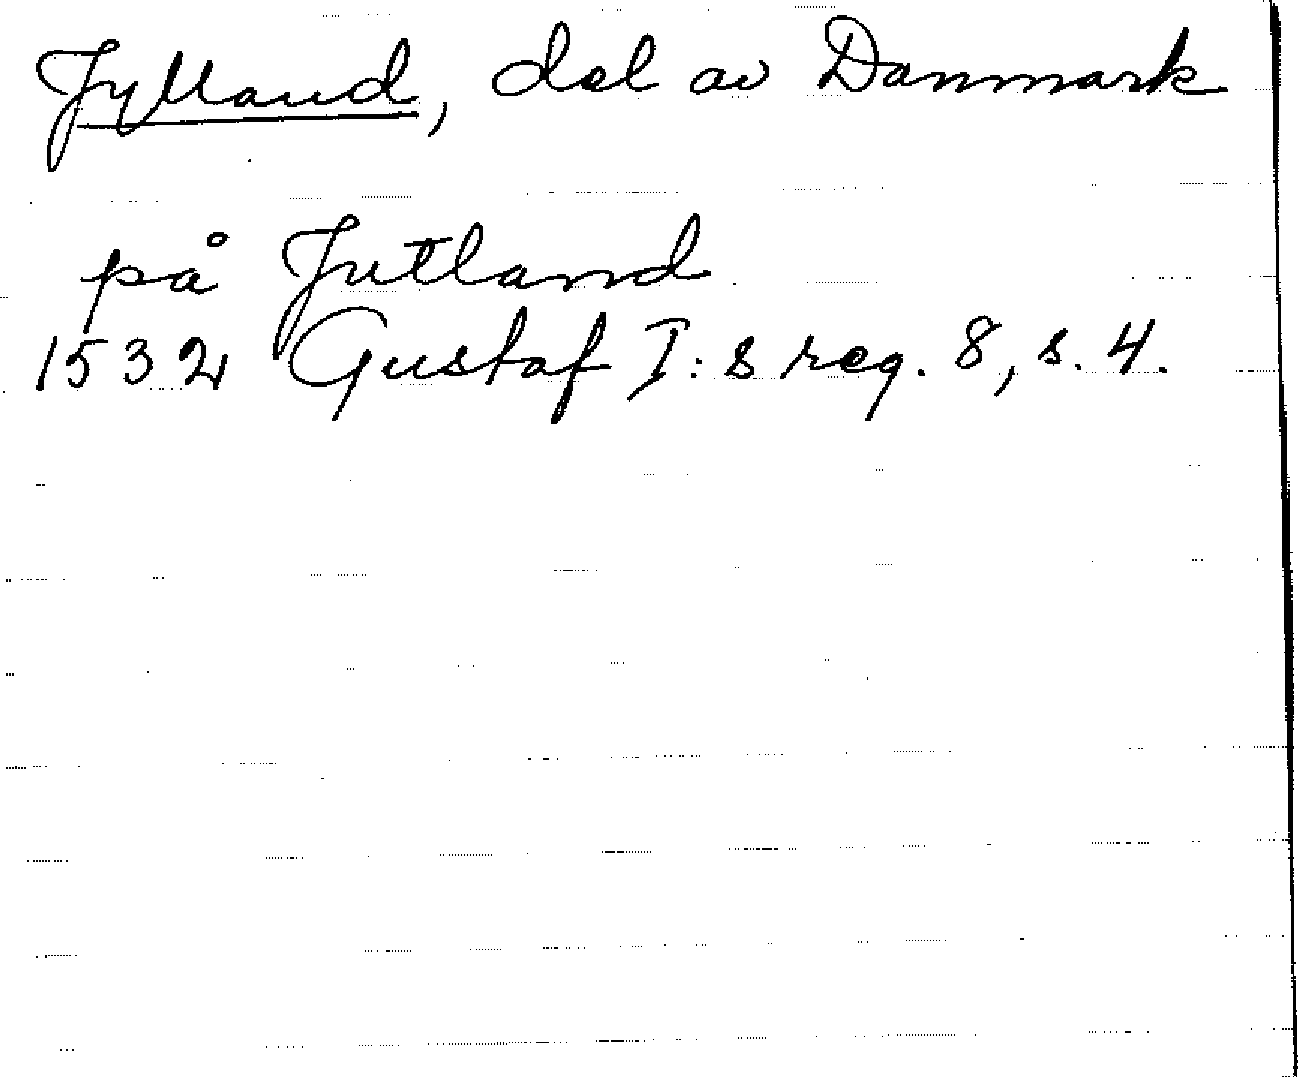 Jylland, del av Danmark
på Jutland
1532 Gustaf I:s reg. 8, s. 4.